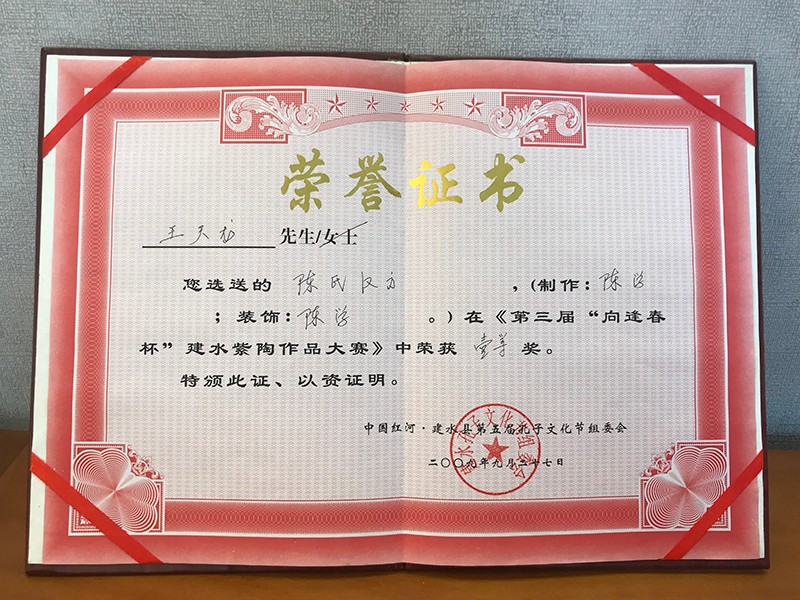 荣誉证书
王天龙 先生/女士
您选送的 陈氏汉方 ，(制作：陈学
；装饰：陈学 。）在《第三届“向逢春
杯”建水紫陶作品大赛》中荣获 壹等 奖。
特颁此证、以资证明。
中国红河·建水县第五届孔子文化节组委会
二〇〇九年九月二十七日